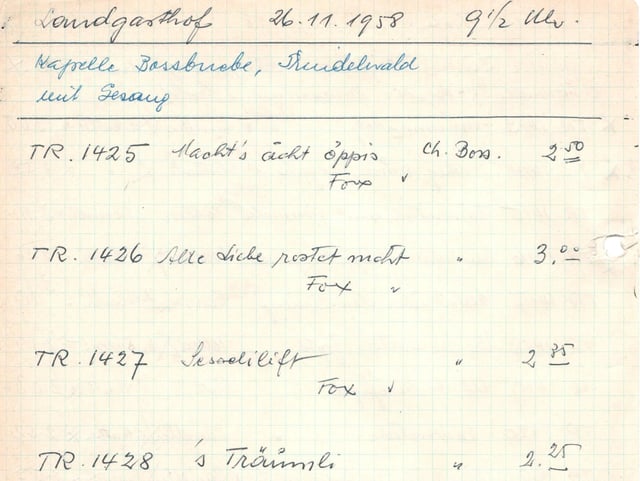 Landgasthof 26.11.1958 9 1/2 Uhr.
Kapelle Bossbuebe,
mit Gesang
TR. 1425 Macht's ächt öppis Ch. Boss. 2 50
Fox "
TR. 1426 Alte Liebe rostet nicht " 3.00
Fox "
TR. 1427 Sesselilift " 2 35
Fox "
TR. 1428 's Träumli " 2.25